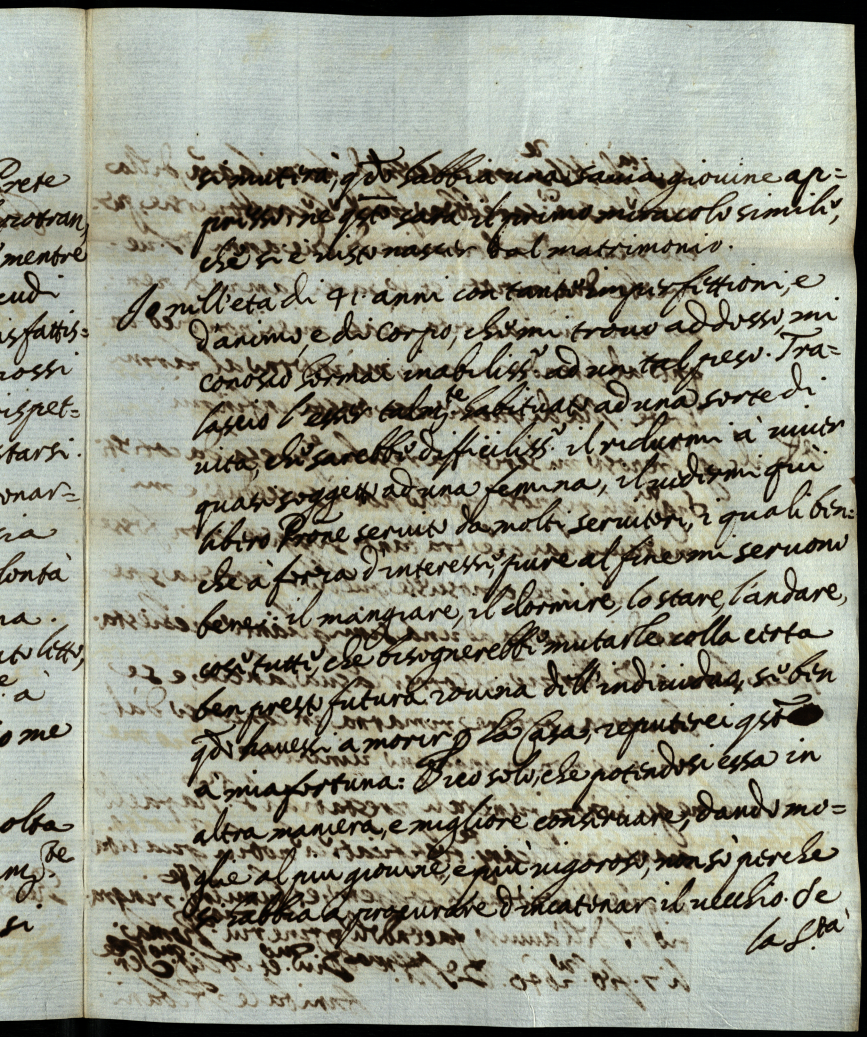 Prete
mentre
isfattis=
rispet=
starsi.
onar=
sia
lontà
na.
à
o me
olta
si
si mutera, qdo habbia una savia giovine ap=
presso; ne qsto sarà il primo miracolo simile,
che si è visto nascer dal matrimonio.
Io nell'età di 41 anni con tante imperfettioni, e
d'animo, e di corpo, che mi trovo addosso, mi
conosco hormai inabiliss.o ad un tal peso. Tra=
lascio l'esser talmte habituato ad una sorte di
vita, che sarebbe difficiliss.o il ridurmi à viver
quasi soggetto ad una femina, il vedermi quì
libero Prone servito da molti servitori, i quali ben=
che à forza d'interesse, pure al fine mi servono
bene: il mangiare, il dormire, lo stare, l'andare,
cose tutte, che bisognerebbe mutarle colla certa
ben presto futura rovina dell'individuo, se ben
qdo havessi a morir p la Casa, reputerei qsto
à mia fortuna: Dico solo, che potendosi essa in
altra maniera, e migliore conservare, dando mo=
glie al più giovine, e più vigoroso, non sò perche
si habbia à procurare d'incatenar il vecchio. Se
la S.tà